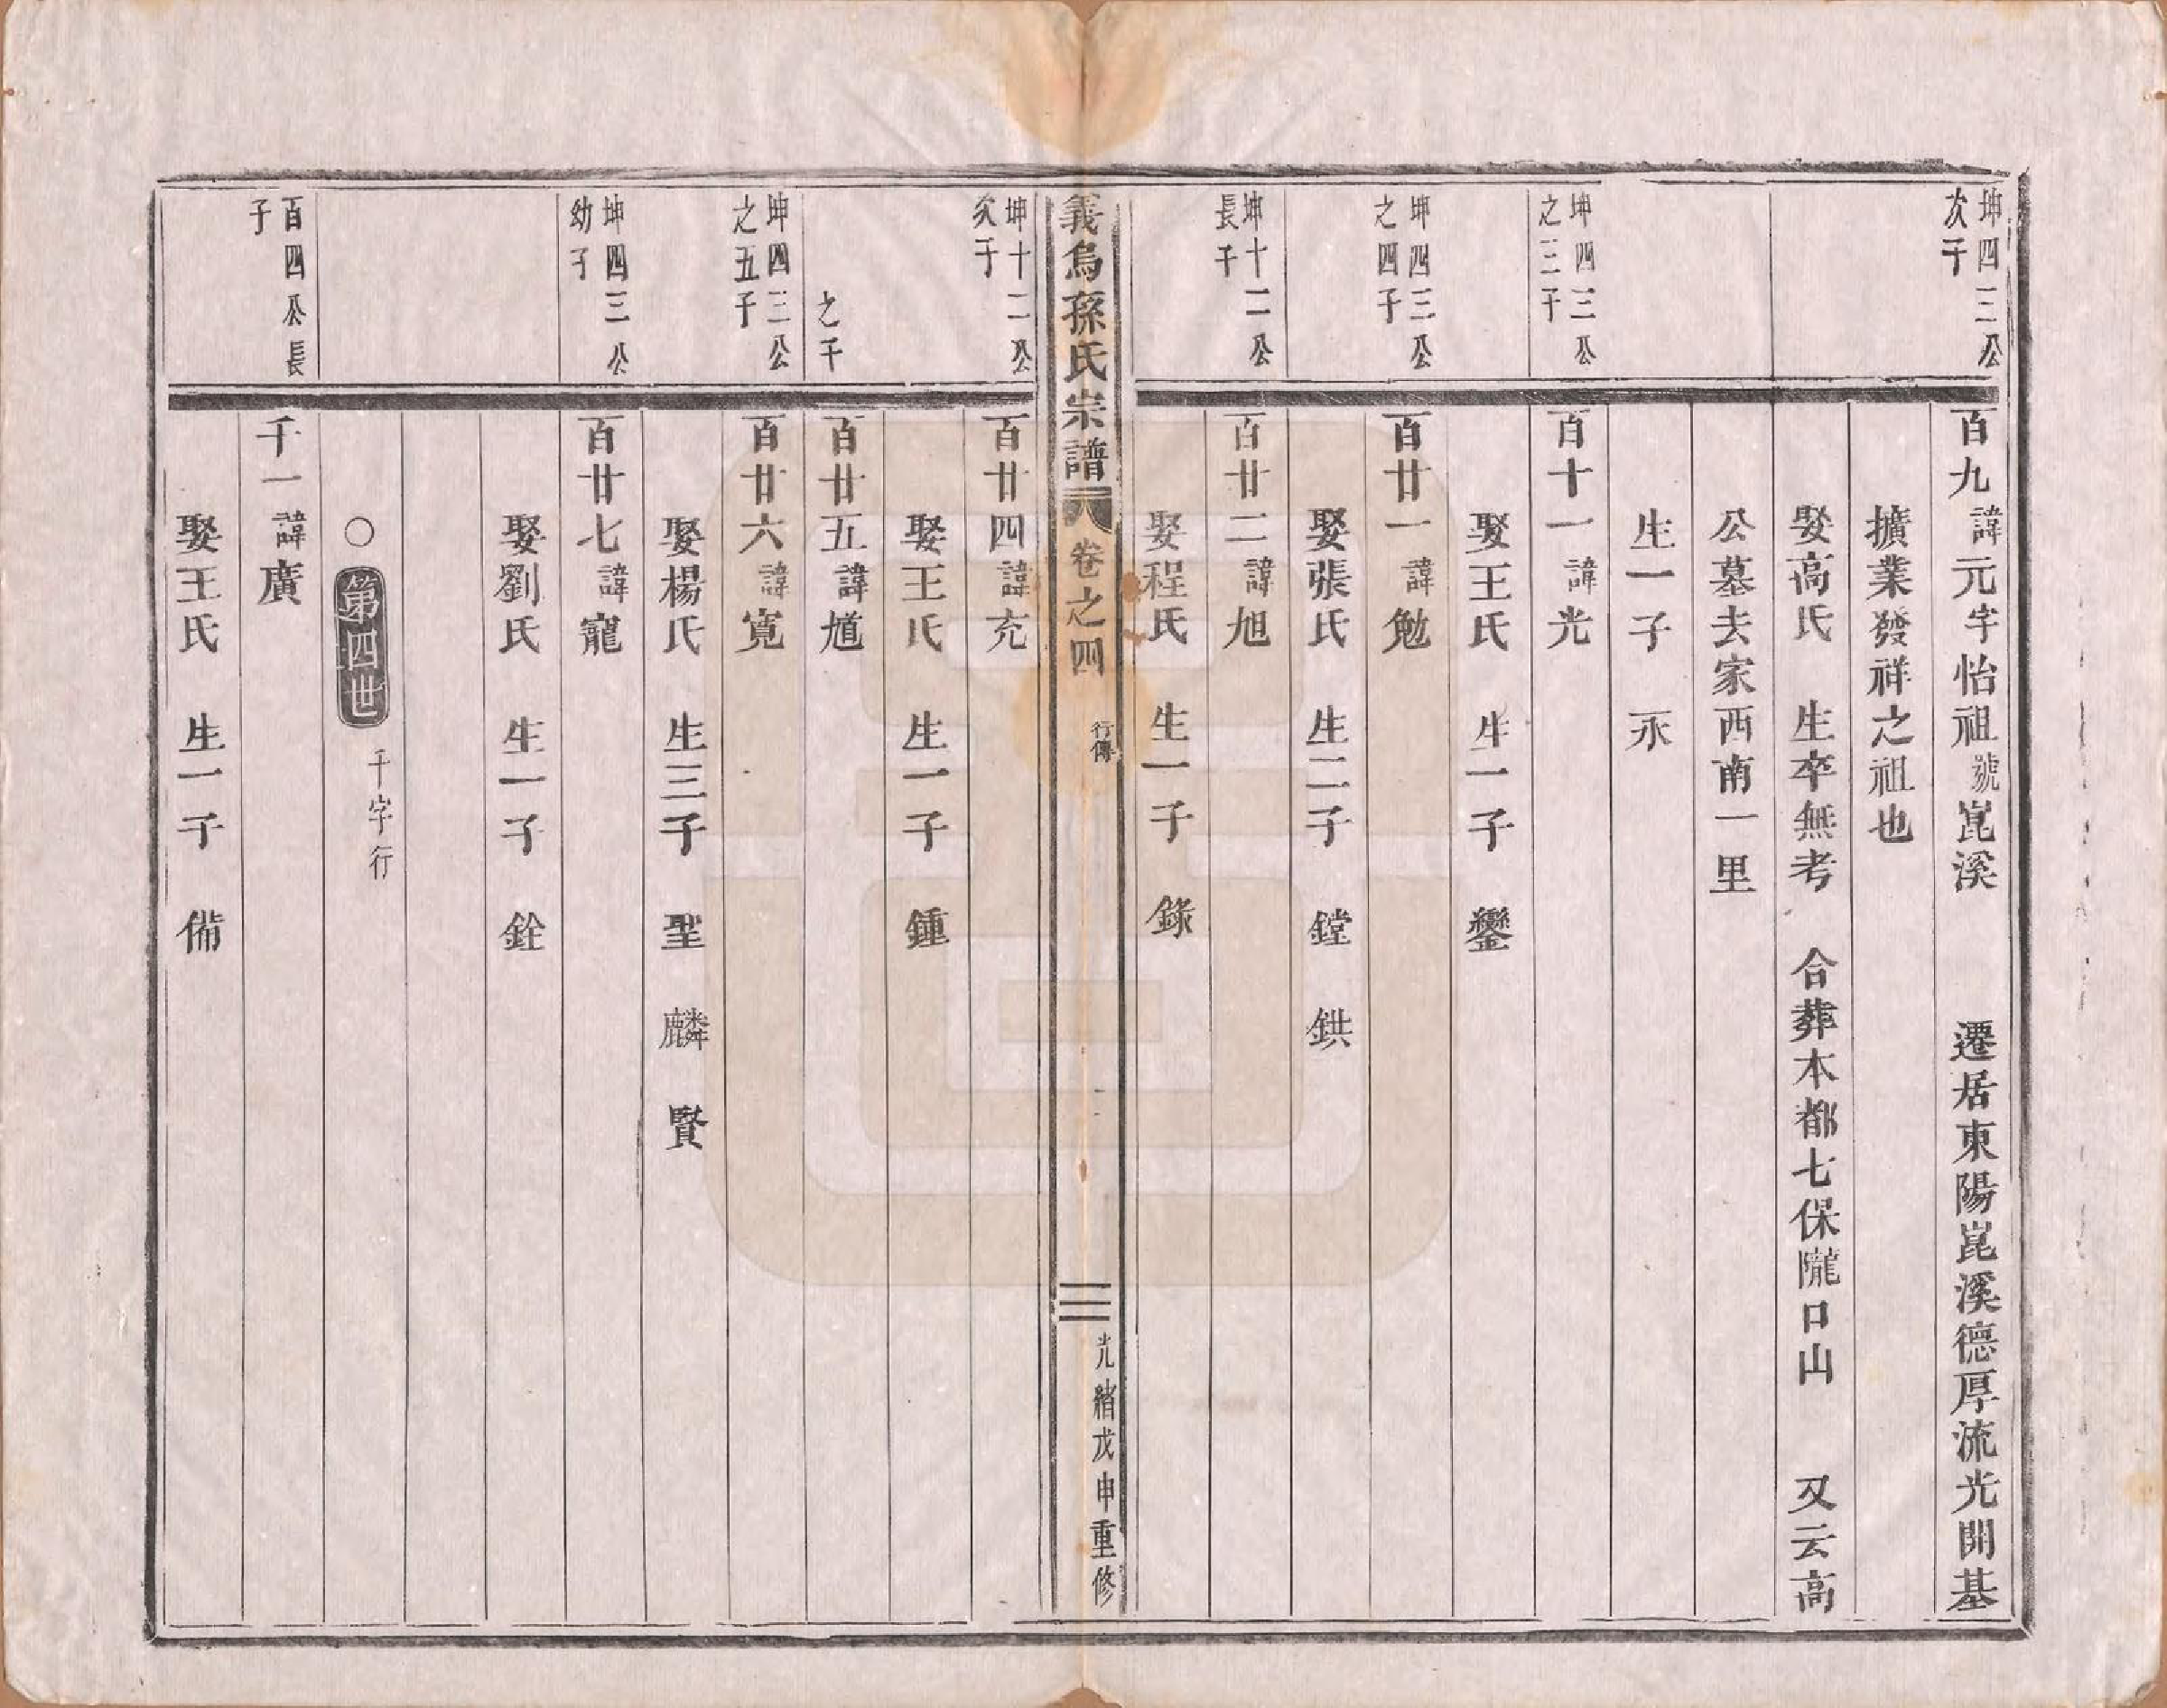 坤四三公
次子
百九諱元字怡祖號崑溪 遷居東陽崑溪德厚流光開基
擴業發祥之祖也
娶高氏 生卒無考 合葬本都七保隴口山 又云高
公墓去家西南一里
生一子 永
坤四三公
之三子
百十一諱光
娶王氏 生一子 鑾
坤四三公
之四子
百廿一諱勉
娶張氏 生二子 鏜 鉷
坤十二公
長子
百廿二諱旭
娶程氏 生一子 錄
義烏孫氏宗譜
卷之四 行傳
三
光緒戊申重修
坤十二公
次子
百廿四諱充
娶王氏 生一子 鍾
之子
百廿五諱馗
坤四三公
之五子
百廿六諱寬
娶楊氏 生三子 聖 麟 賢
坤四三公
幼子
百廿七諱寵
娶劉氏 生一子 銓
○第四世 千字行
百四公長
子
千一諱廣
娶王氏 生一子 備